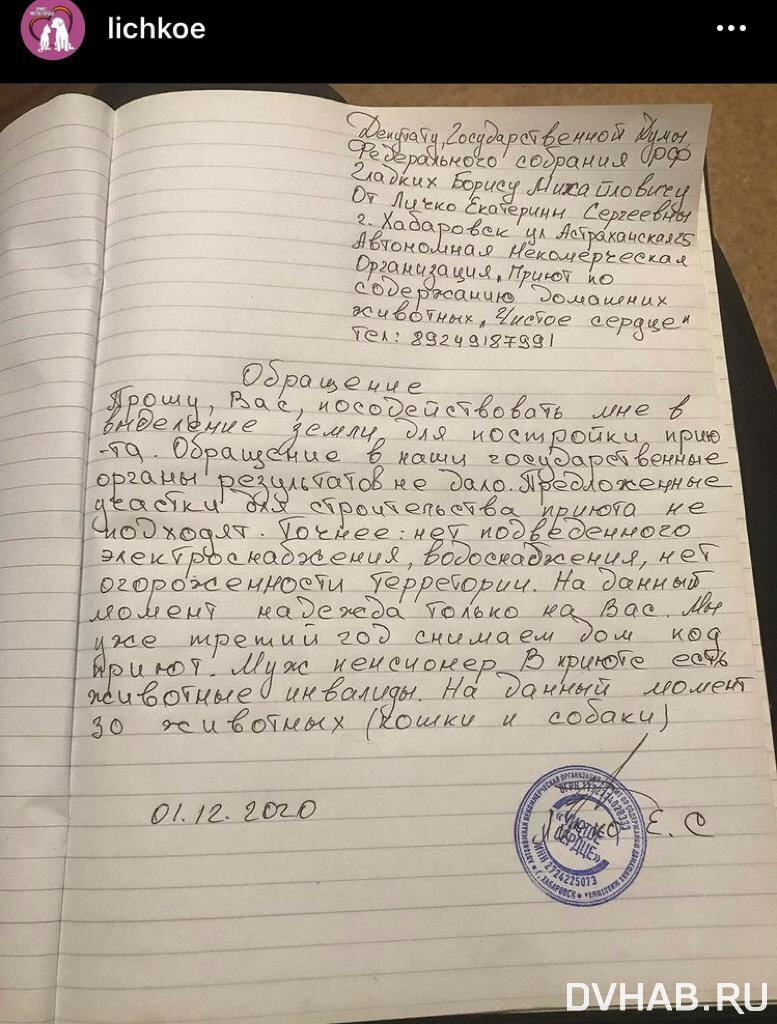 lichkoe
Депутату, Государственной Думы,
Федерального собрания РФ
Гладких Борису Михайловичу
От Личко Екатерины Сергеевны
г. Хабаровск ул Астраханская 25
Автономная Некомерческая
Организация, Приют по
содержанию домашних
животных, "Чистое сердце"
Тел: 89249187991
Обращение
Прошу, Вас, посодействовать мне в
выделение земли для постройки прию
-та. Обращение в наши государственные
органы результатов не дало. Предложенные
участки для строительства приюта не
подходят. Точнее: нет подведенного
электроснабжения, водоснабжения, нет
огороженности территории. На данный
момент надежда только на Вас. Мы
уже третий год снимаем дом под
приют. Муж пенсионер. В приюте есть
животные инвалиды. На данный момент
30 животных (кошки и собаки)
01.12.2020
Е. С
АВТОНОМНАЯ НЕКОММЕРЧЕСКАЯ ОРГАНИЗАЦИЯ ПРИЮТ ПО СОДЕРЖАНИЮ ДОМАШНИХ ЖИВОТНЫХ
«ЧИСТОЕ
СЕРДЦЕ»
ИНН 2724225073
Г. ХАБАРОВСК
DVHAB.RU